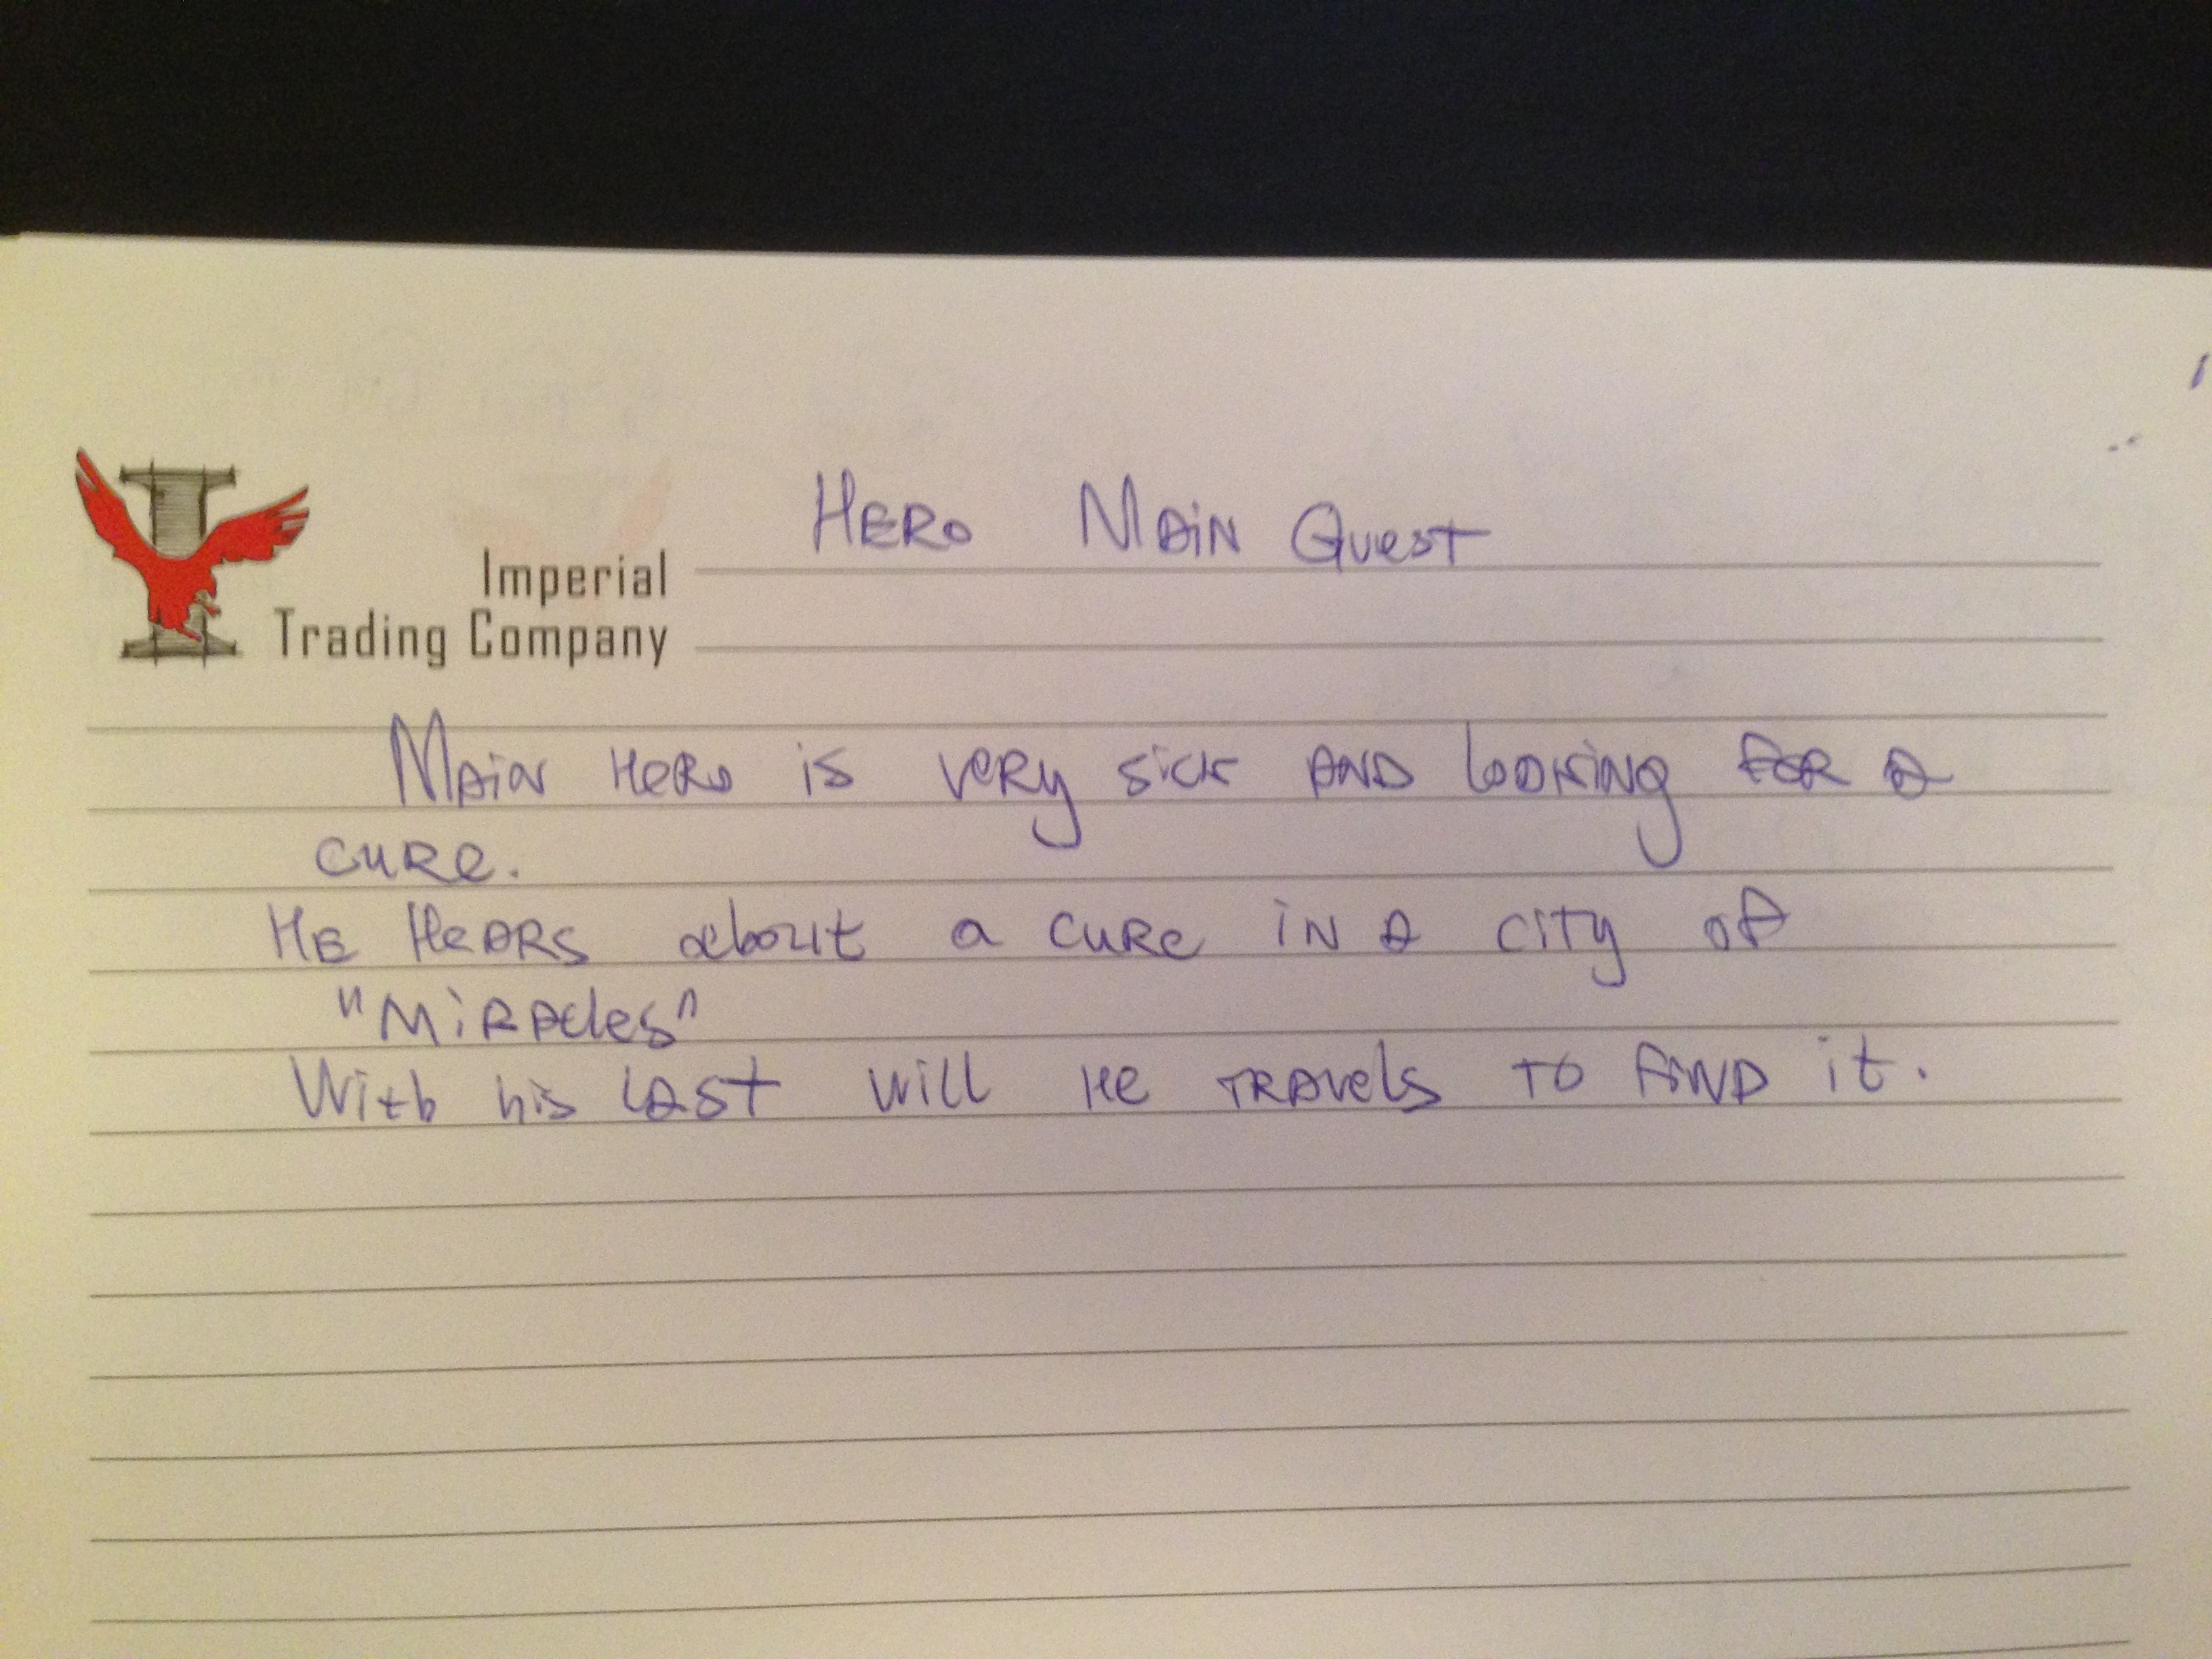 Imperial
Trading Company
HERO MAIN QUEST
MAIN HERO is very sick AND looking FOR A
CURE.
HE HEARS about a CURE IN A CITY of
"MIRACLES"
With his LAST Will HE TRAVELS TO FIND it.